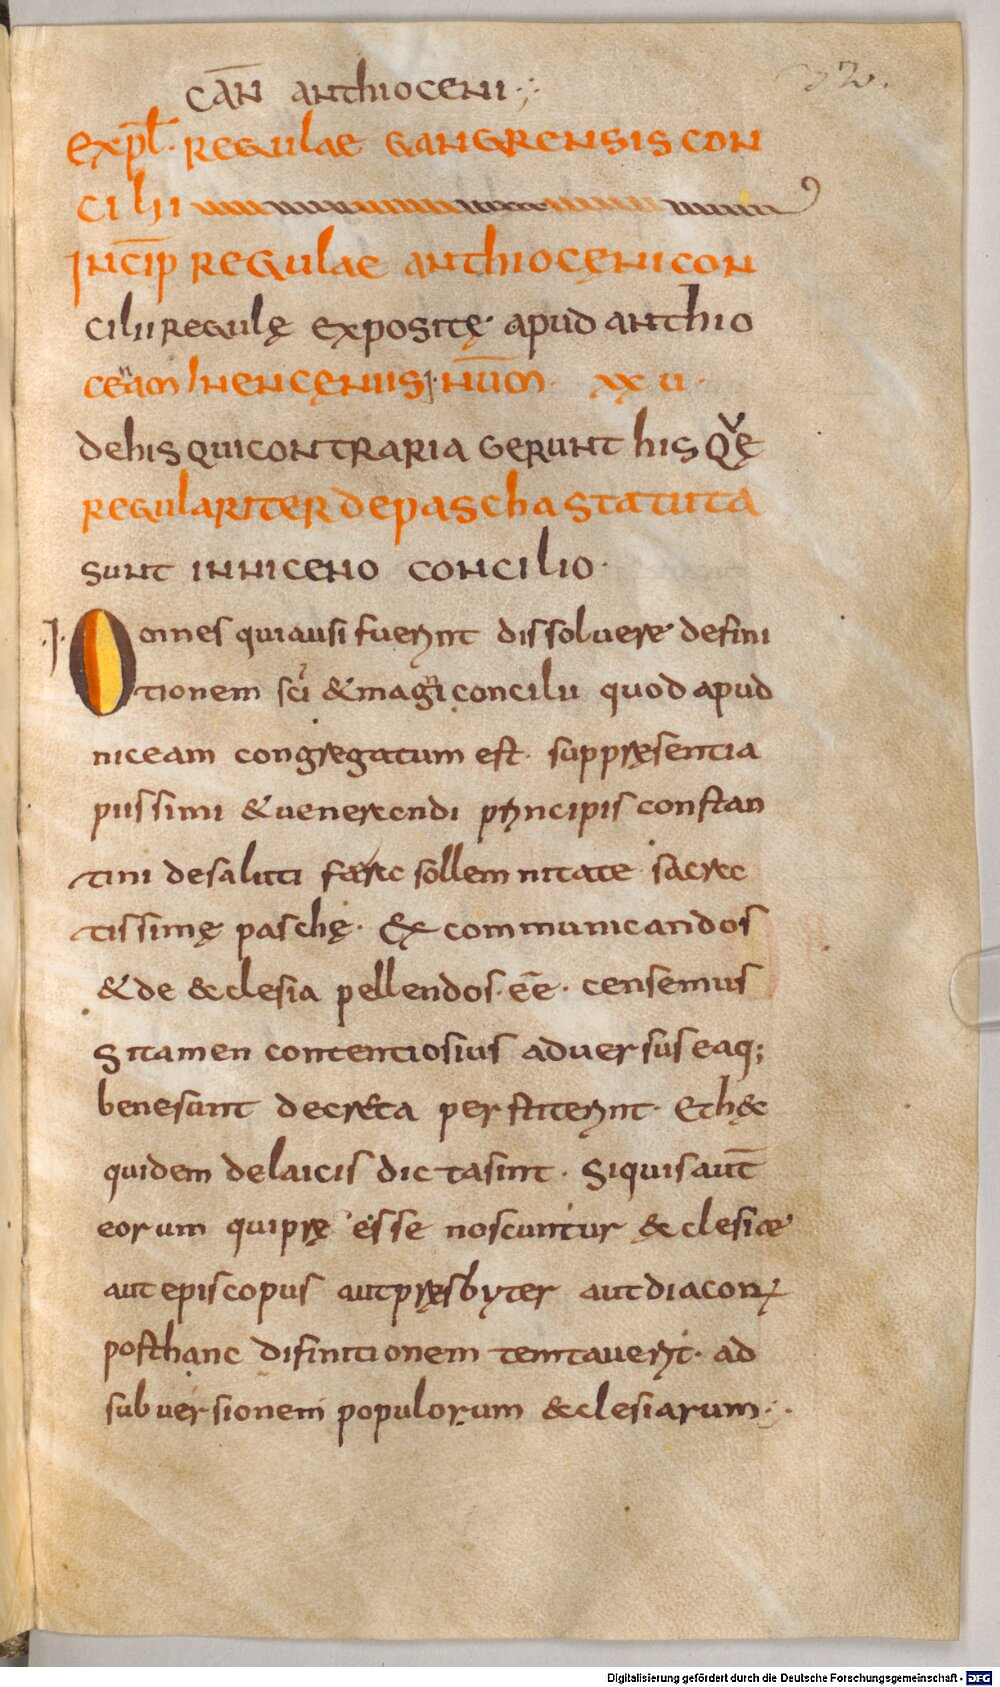 cān anthioceni
32.
expl̄. regulae gangrensis con
cilii
incip̄ regulae anthiocęni con
cilii regulę expositę apud anthio
ceām in encęniis nūm xxv.
de his qui contraria gerunt his quę
regulariter de pascha statuta
sunt in niceno concilio.
.I. Omnes qui ausi fuerunt dissoluere defini
tionem sc̄i & magni concilii quod apud
niceam congregatum est. sup pręsentia
piissimi & uenerandi principis constan
tini de saluti fara sollemnitate sacra
tissimę paschę. Excommunicandos
& de &clesia pellendos. ēē. censemus
Si tamen contentiosius aduersus eaq;
bene sunt decreta perstiterunt. Et hęc
quidem de laicis dicta sint. Si quis aut̄
eorum qui pręesse noscuntur &clesiae
aut episcopus aut pręsbyter aut diacon
post hanc difinitionem temtauerit. ad
subuersionem populorum &clesiarum.
Digitalisierung gefördert durch die Deutsche Forschungsgemeinschaft - DFG